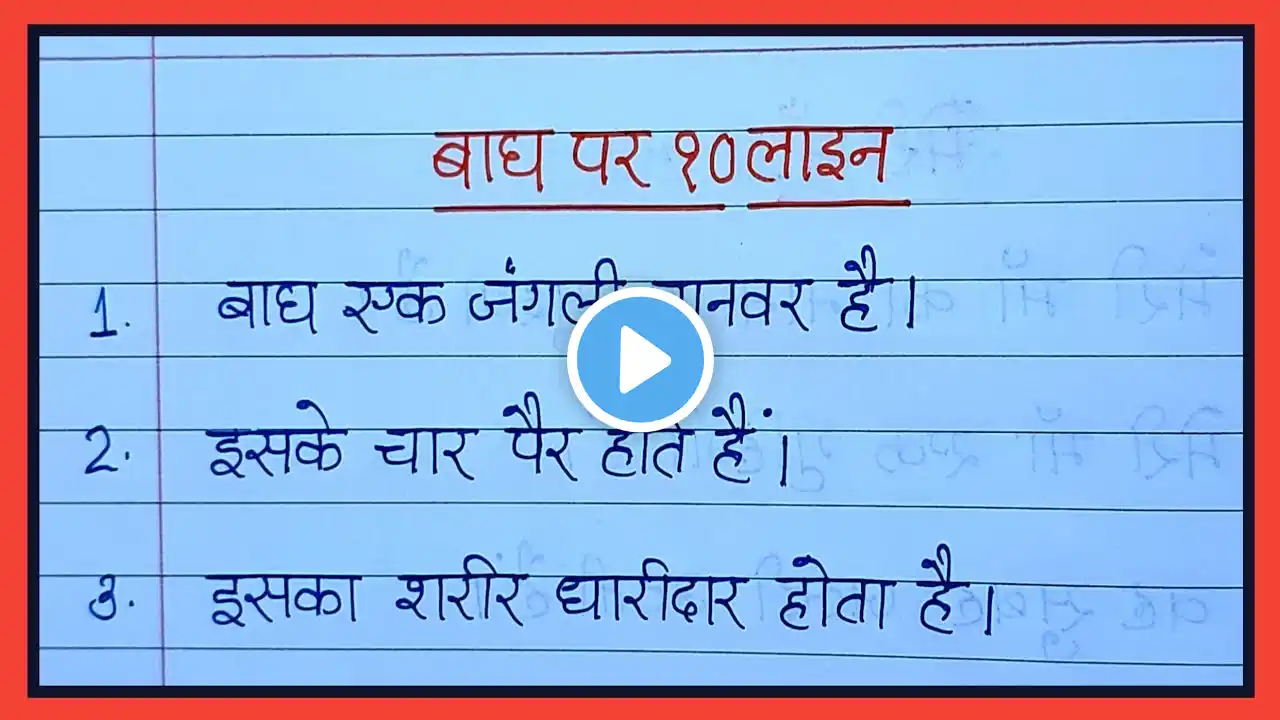 बाघ पर १० लाइन
1. बाघ एक जंगली जानवर है।
2. इसके चार पैर होते हैं।
3. इसका शरीर धारीदार होता है।